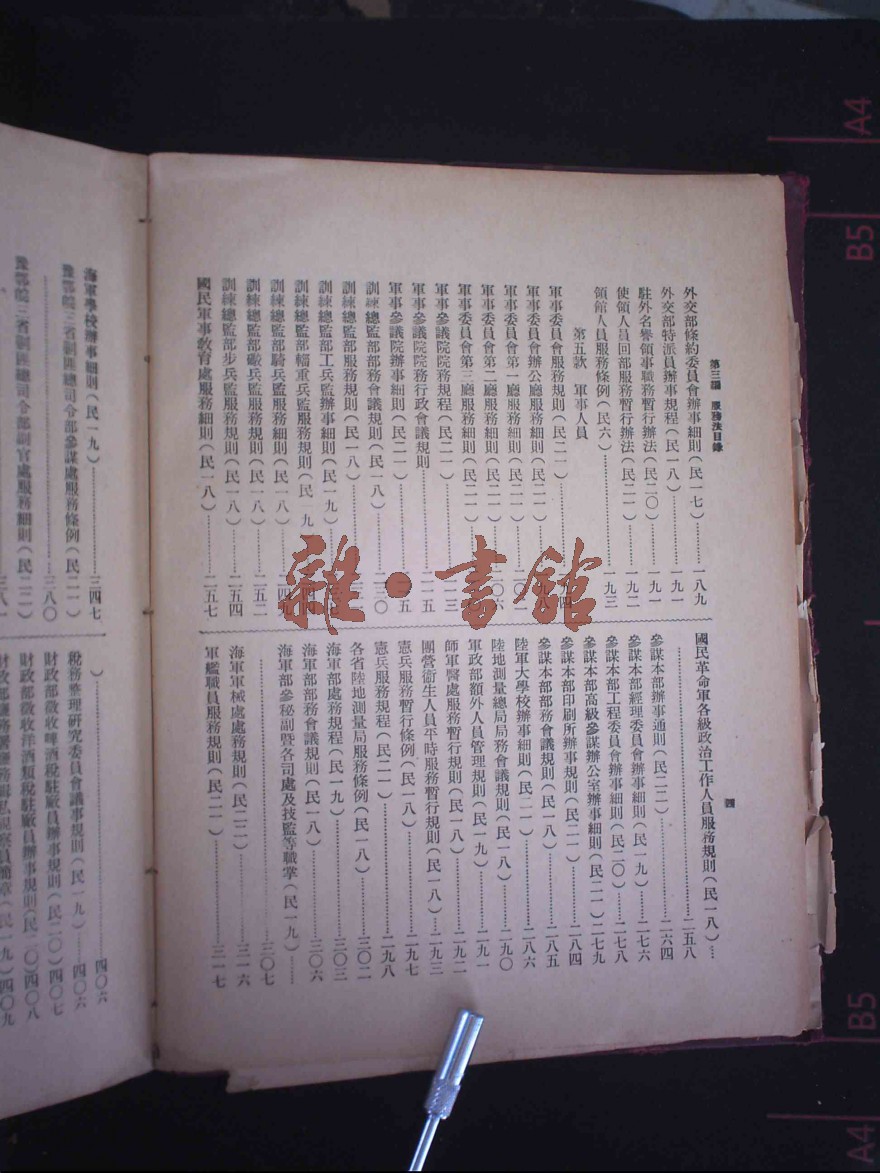 第三編 服務法目錄
四
外交部條約委員會辦事細則(民一七)…………一八九
外交部特派員辦事規程(民一八)…………一九一
駐外名譽領事職務暫行辦法(民二〇)…………一九一
使領人員回部服務暫行辦法(民二一)…………一九二
領館人員服務條例(民六)…………一九三
第五款 軍事人員
軍事委員會服務規則(民二一)…………
軍事委員會辦公廳服務細則(民二一)…………
軍事委員會第一廳服務細則(民二一)…………二〇二
軍事委員會第二廳服務細則(民二一)…………二〇六
軍事委員會第三廳服務細則(民二一)…………
軍事參議院規程(民二一)…………
軍事參議院院務行政會議規則…………二一五
軍事參議院辦事細則(民二一)…………二一五
訓練總監部部務會議規則(民一八)…………二三〇
訓練總監部服務規則(民一八)…………
訓練總監部工兵監辦事細則(民一九)…………
訓練總監部輜重兵監服務規則(民一九
訓練總監部騎兵監服務細則(民一八)…………二四九
訓練總監部礮兵監服務規則(民一八)…………二五二
訓練總監部步兵監服務規則(民一八)…………二五四
國民軍事教育處服務細則(民一八)…………二五七
國民革命軍各級政治工作人員服務規則(民一八)…
…………二五八
參謀本部辦事通則(民二二)…………二六四
參謀本部經理委員會辦事細則(民一九)…………二七六
參謀本部工程委員會辦事細則(民二〇)…………二七八
參謀本部高級參謀辦公室辦事細則(民二一)二七九
參謀本部印刷所辦事規則(民二一)…………二八四
參謀本部部務會議規則(民二一)…………二八五
陸軍大學校辦事細則(民二一)…………二八六
陸地測量總局局務會議規則(民一八)…………二九〇
軍政部額外人員管理規則(民一九)…………二九一
師軍醫處服務暫行規則(民一八)…………二九二
團營衞生人員平時服務暫行規則(民一八)…二九三
憲兵服務暫行條例(民一八)…………二九七
憲兵服務規程(民二一)…………二九八
各省陸地測量局服務條例(民一八)…………三〇二
海軍部辦事規則(民一九)…………三〇三
海軍部部務會議規則(民一八)…………三〇六
海軍部參秘副暨各司處及技監等職掌(民一九)……
…………三〇七
海軍軍械處處務規則(民二二)…………三一六
軍艦職員服務規則(民二一)…………三一七
海軍學校辦事細則(民一九)…………三四七
豫鄂皖三省剿匪總司令部參謀處服務條例(民二一
)…………三八〇
豫鄂皖三省剿匪總司令部副官處服務細則(民二一
)…………三八一
)…………四〇六
稅務整理研究委員會議事規則(民一九)…………四〇六
財政部徵收啤酒稅駐廠員辦事規則(民二〇)四〇七
財政部徵收洋酒類稅駐廠員辦事規則(民二〇)四〇八
雜·書館
A4
B5
B5
A4